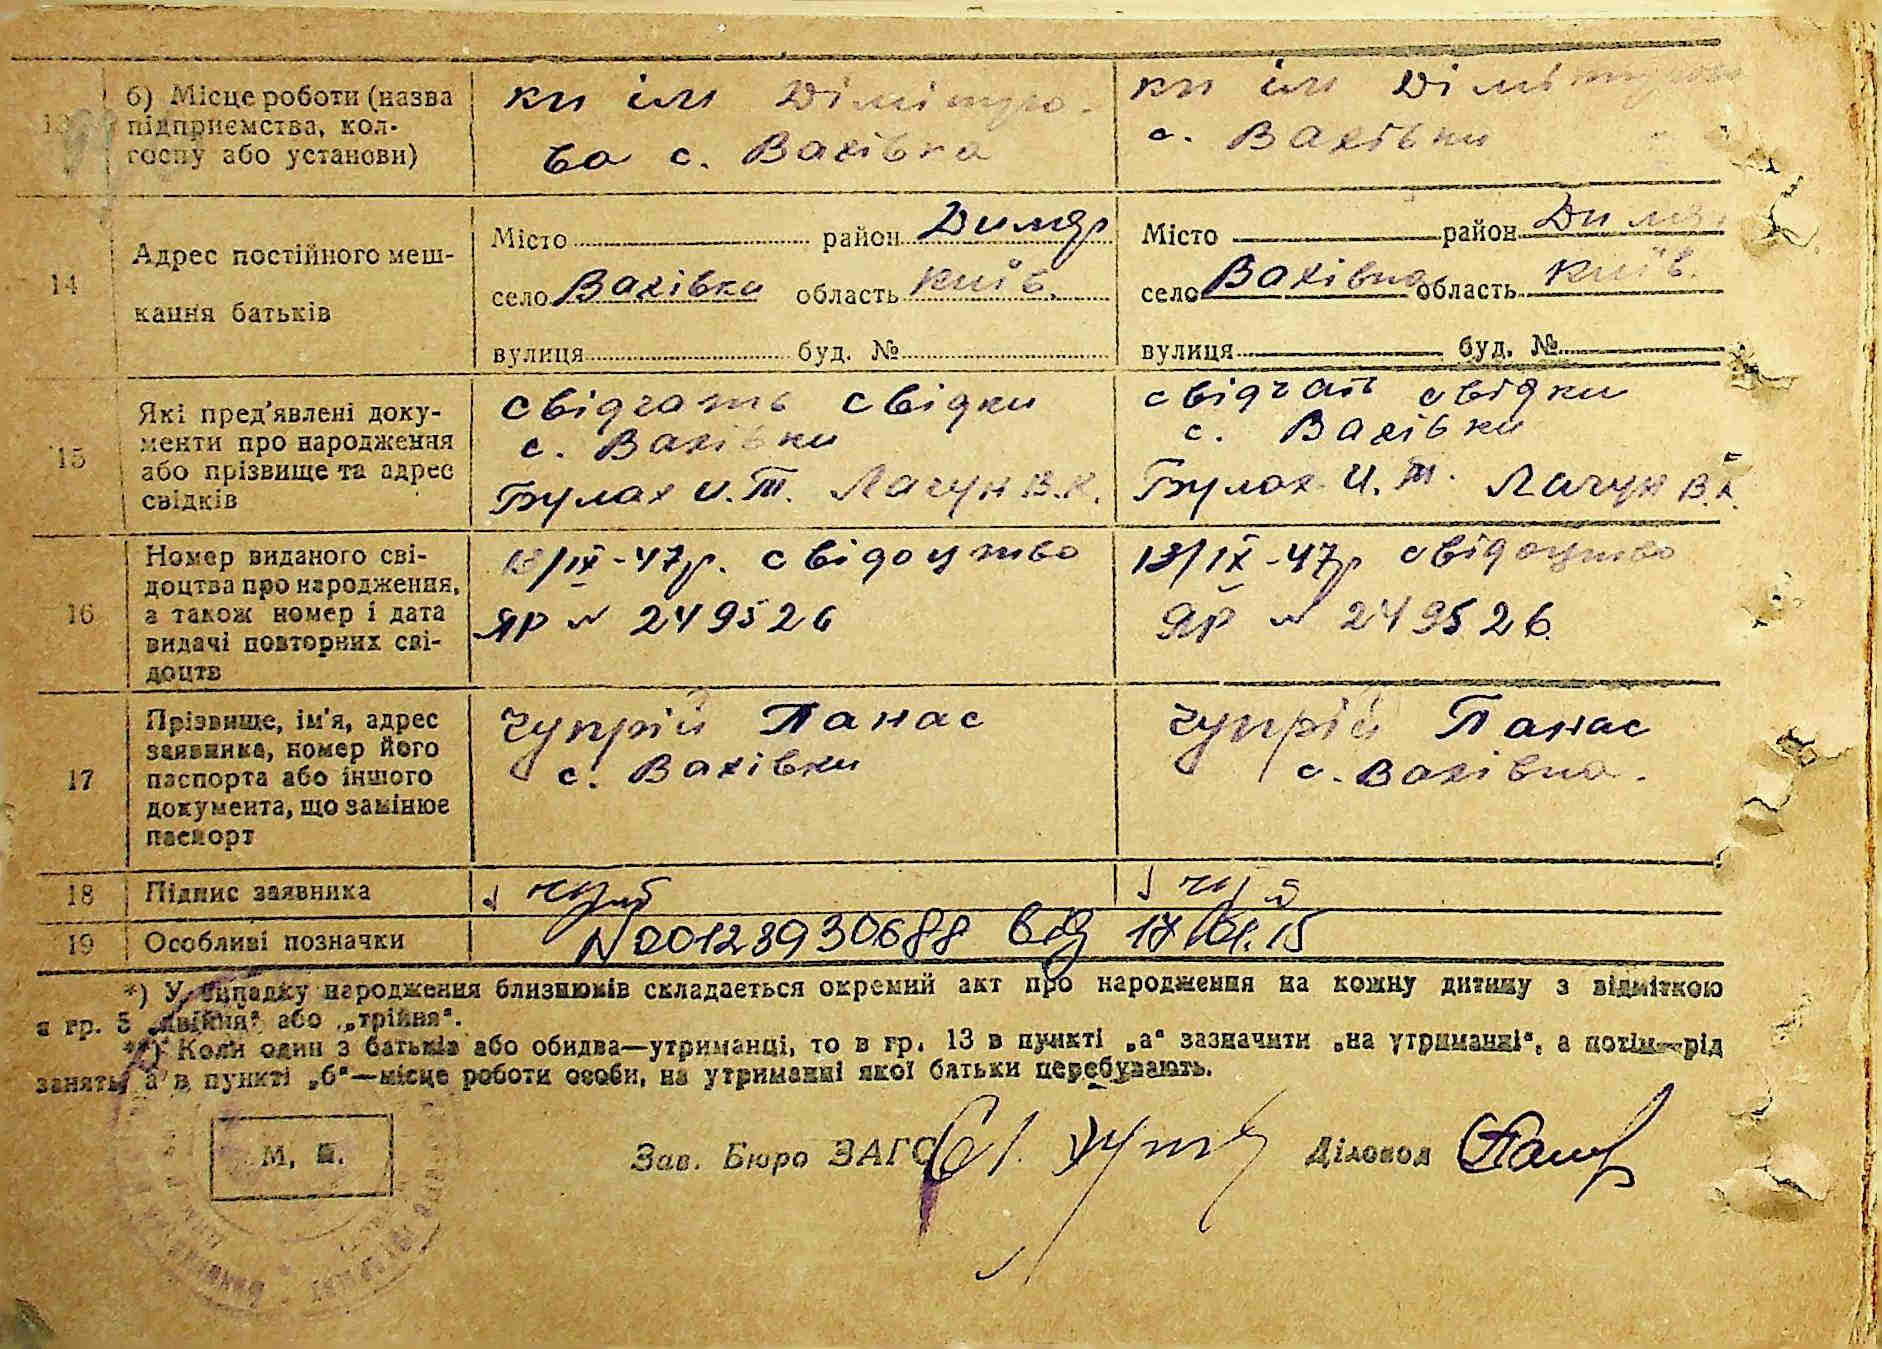 13
б) Місце роботи (назва підприємства, кол-
госпу або установи)
кп ім Дімітро-
ва с. Вахівка
кп ім Дімітро
с. Вахівки
14
Адрес постійного меш-
кання батьків
Місто район Димер
село Вахівка область Київ.
вулиця буд. №
Місто район Димер
село Вахівка область Київ.
вулиця буд. №
15
Які пред'явлені доку-
менти про народження
або прізвище та адрес
свідків
свідчать свідки
с. Вахівки
Булах И.Т. Лагун В.К.
свідчать свідки
с. Вахівки
Булах И.Т. Лагун В.К.
16
Номер виданого сві-
доцтва про народження,
а також номер і дата
видачі повторних сві-
доцтв
13/IX-47р. свідоцтво
ЯР № 249526
13/IX-47р свідоцтво
ЯР № 249526
17
Прізвище, ім'я, адрес
заявника, номер його
паспорта або іншого
документа, що замінює
паспорт
Чупрій Панас
с. Вахівки
Чупрій Панас
с. Вахівка.
18
Підпис заявника
19
Особливі позначки
№00123930688 від 17.01.15
*) У випадку народження близнюків складається окремий акт про народження на кожну дитину з відміткою
в гр. 5 „двійня“ або „трійня“.
**) Коли один з батьків або обидва—утриманці, то в гр. 13 в пункті „а“ зазначити „на утриманні“, а потім—рід
занять, а в пункті „б“—місце роботи особи, на утриманні якої батьки перебувають.
М. П.
Зав. Бюро ЗАГС
Діловод